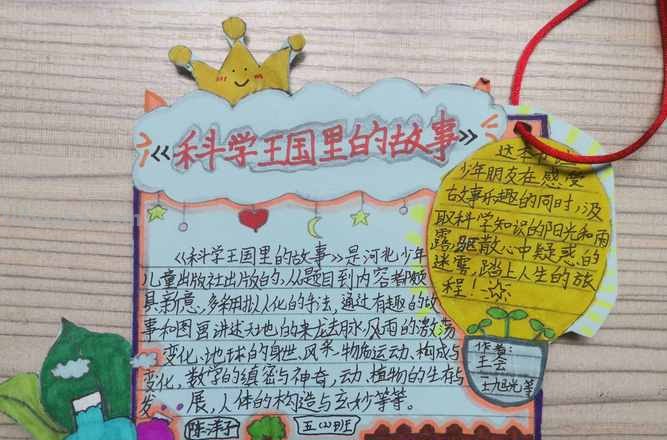 《科学王国里的故事》
《科学王国里的故事》是河北少年
儿童出版社出版的,从题目到内容都颇
具新意,多采用拟人化的手法,通过有趣的故
事和图画讲述天地的来龙去脉,风雨的激荡
变化,地球的身世、风采,物质运动、构成与
变化,数学的缜密与神奇,动、植物的生存与
发展,人体的构造与玄妙等等。
五(2)班
这本
少年朋友在感受
故事乐趣的同时,汲
取科学知识的阳光和雨
露,驱散心中疑惑的
迷雾,踏上人生的旅
程!
作者:
王会
等